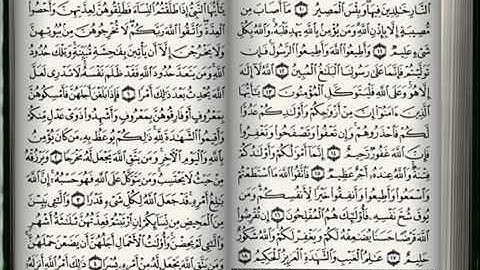 ٱلنَّارِ خَٰلِدِينَ فِيهَا وَبِئْسَ ٱلْمَصِيرُ ١٠ مَآ أَصَابَ مِن
مُّصِيبَةٍ إِلَّا بِإِذْنِ ٱللَّهِ وَمَن يُؤْمِنۢ بِٱللَّهِ يَهْدِ قَلْبَهُۥ وَٱللَّهُ بِكُلِّ
شَىْءٍ عَلِيمٌ ١١ وَأَطِيعُوا۟ ٱللَّهَ وَأَطِيعُوا۟ ٱلرَّسُولَ فَإِن
تَوَلَّيْتُمْ فَإِنَّمَا عَلَىٰ رَسُولِنَا ٱلْبَلَٰغُ ٱلْمُبِينُ ١٢ ٱللَّهُ لَآ إِلَٰهَ
إِلَّا هُوَ وَعَلَى ٱللَّهِ فَلْيَتَوَكَّلِ ٱلْمُؤْمِنُونَ ١٣ يَٰٓأَيُّهَا
ٱلَّذِينَ ءَامَنُوٓا۟ إِنَّ مِنْ أَزْوَٰجِكُمْ وَأَوْلَٰدِكُمْ عَدُوًّا
لَّكُمْ فَٱحْذَرُوهُمْ وَإِن تَعْفُوا۟ وَتَصْفَحُوا۟ وَتَغْفِرُوا۟
فَإِنَّ ٱللَّهَ غَفُورٌ رَّحِيمٌ ١٤ إِنَّمَآ أَمْوَٰلُكُمْ وَأَوْلَٰدُكُمْ
فِتْنَةٌ وَٱللَّهُ عِندَهُۥٓ أَجْرٌ عَظِيمٌ ١٥ فَٱتَّقُوا۟ ٱللَّهَ مَا ٱسْتَطَعْتُمْ
وَٱسْمَعُوا۟ وَأَطِيعُوا۟ وَأَنفِقُوا۟ خَيْرًا لِّأَنفُسِكُمْ وَمَن
يُوقَ شُحَّ نَفْسِهِۦ فَأُو۟لَٰٓئِكَ هُمُ ٱلْمُفْلِحُونَ ١٦ إِن تُقْرِضُوا۟
ٱللَّهَ قَرْضًا حَسَنًا يُضَٰعِفْهُ لَكُمْ وَيَغْفِرْ لَكُمْ وَٱللَّهُ شَكُورٌ
حَلِيمٌ ١٧ عَٰلِمُ ٱلْغَيْبِ وَٱلشَّهَٰدَةِ ٱلْعَزِيزُ ٱلْحَكِيمُ ١٨
يَٰٓأَيُّهَا ٱلنَّبِىُّ إِذَا طَلَّقْتُمُ ٱلنِّسَآءَ فَطَلِّقُوهُنَّ لِعِدَّتِهِنَّ وَأَحْصُوا۟
ٱلْعِدَّةَ وَٱتَّقُوا۟ ٱللَّهَ رَبَّكُمْ لَا تُخْرِجُوهُنَّ مِنۢ بُيُوتِهِنَّ
وَلَا يَخْرُجْنَ إِلَّآ أَن يَأْتِينَ بِفَٰحِشَةٍ مُّبَيِّنَةٍ وَتِلْكَ حُدُودُ
ٱللَّهِ وَمَن يَتَعَدَّ حُدُودَ ٱللَّهِ فَقَدْ ظَلَمَ نَفْسَهُۥ لَا تَدْرِى لَعَلَّ
ٱللَّهَ يُحْدِثُ بَعْدَ ذَٰلِكَ أَمْرًا ١ فَإِذَا بَلَغْنَ أَجَلَهُنَّ فَأَمْسِكُوهُنَّ
بِمَعْرُوفٍ أَوْ فَارِقُوهُنَّ بِمَعْرُوفٍ وَأَشْهِدُوا۟ ذَوَىْ عَدْلٍ مِّنكُمْ
وَأَقِيمُوا۟ ٱلشَّهَٰدَةَ لِلَّهِ ذَٰلِكُمْ يُوعَظُ بِهِۦ مَن كَانَ يُؤْمِنُ
بِٱللَّهِ وَٱلْيَوْمِ ٱلْءَاخِرِ وَمَن يَتَّقِ ٱللَّهَ يَجْعَل لَّهُۥ مَخْرَجًا ٢ وَيَرْزُقْهُ
مِنْ حَيْثُ لَا يَحْتَسِبُ وَمَن يَتَوَكَّلْ عَلَى ٱللَّهِ فَهُوَ حَسْبُهُۥٓ إِنَّ ٱللَّهَ
بَٰلِغُ أَمْرِهِۦ قَدْ جَعَلَ ٱللَّهُ لِكُلِّ شَىْءٍ قَدْرًا ٣ وَٱلَّٰٓـِٔى يَئِسْنَ
مِنَ ٱلْمَحِيضِ مِن نِّسَآئِكُمْ إِنِ ٱرْتَبْتُمْ فَعِدَّتُهُنَّ ثَلَٰثَةُ أَشْهُرٍ
وَٱلَّٰٓـِٔى لَمْ يَحِضْنَ وَأُو۟لَٰتُ ٱلْأَحْمَالِ أَجَلُهُنَّ أَن يَضَعْنَ حَمْلَهُنَّ
وَمَن يَتَّقِ ٱللَّهَ يَجْعَل لَّهُۥ مِنْ أَمْرِهِۦ يُسْرًا ٤ ذَٰلِكَ أَمْرُ ٱللَّهِ أَنزَلَهُۥٓ